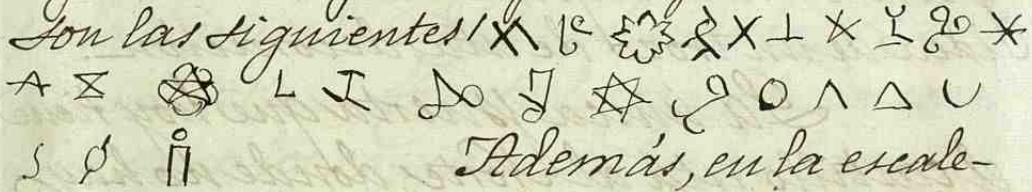 son las siguientes
Además, en la escale-